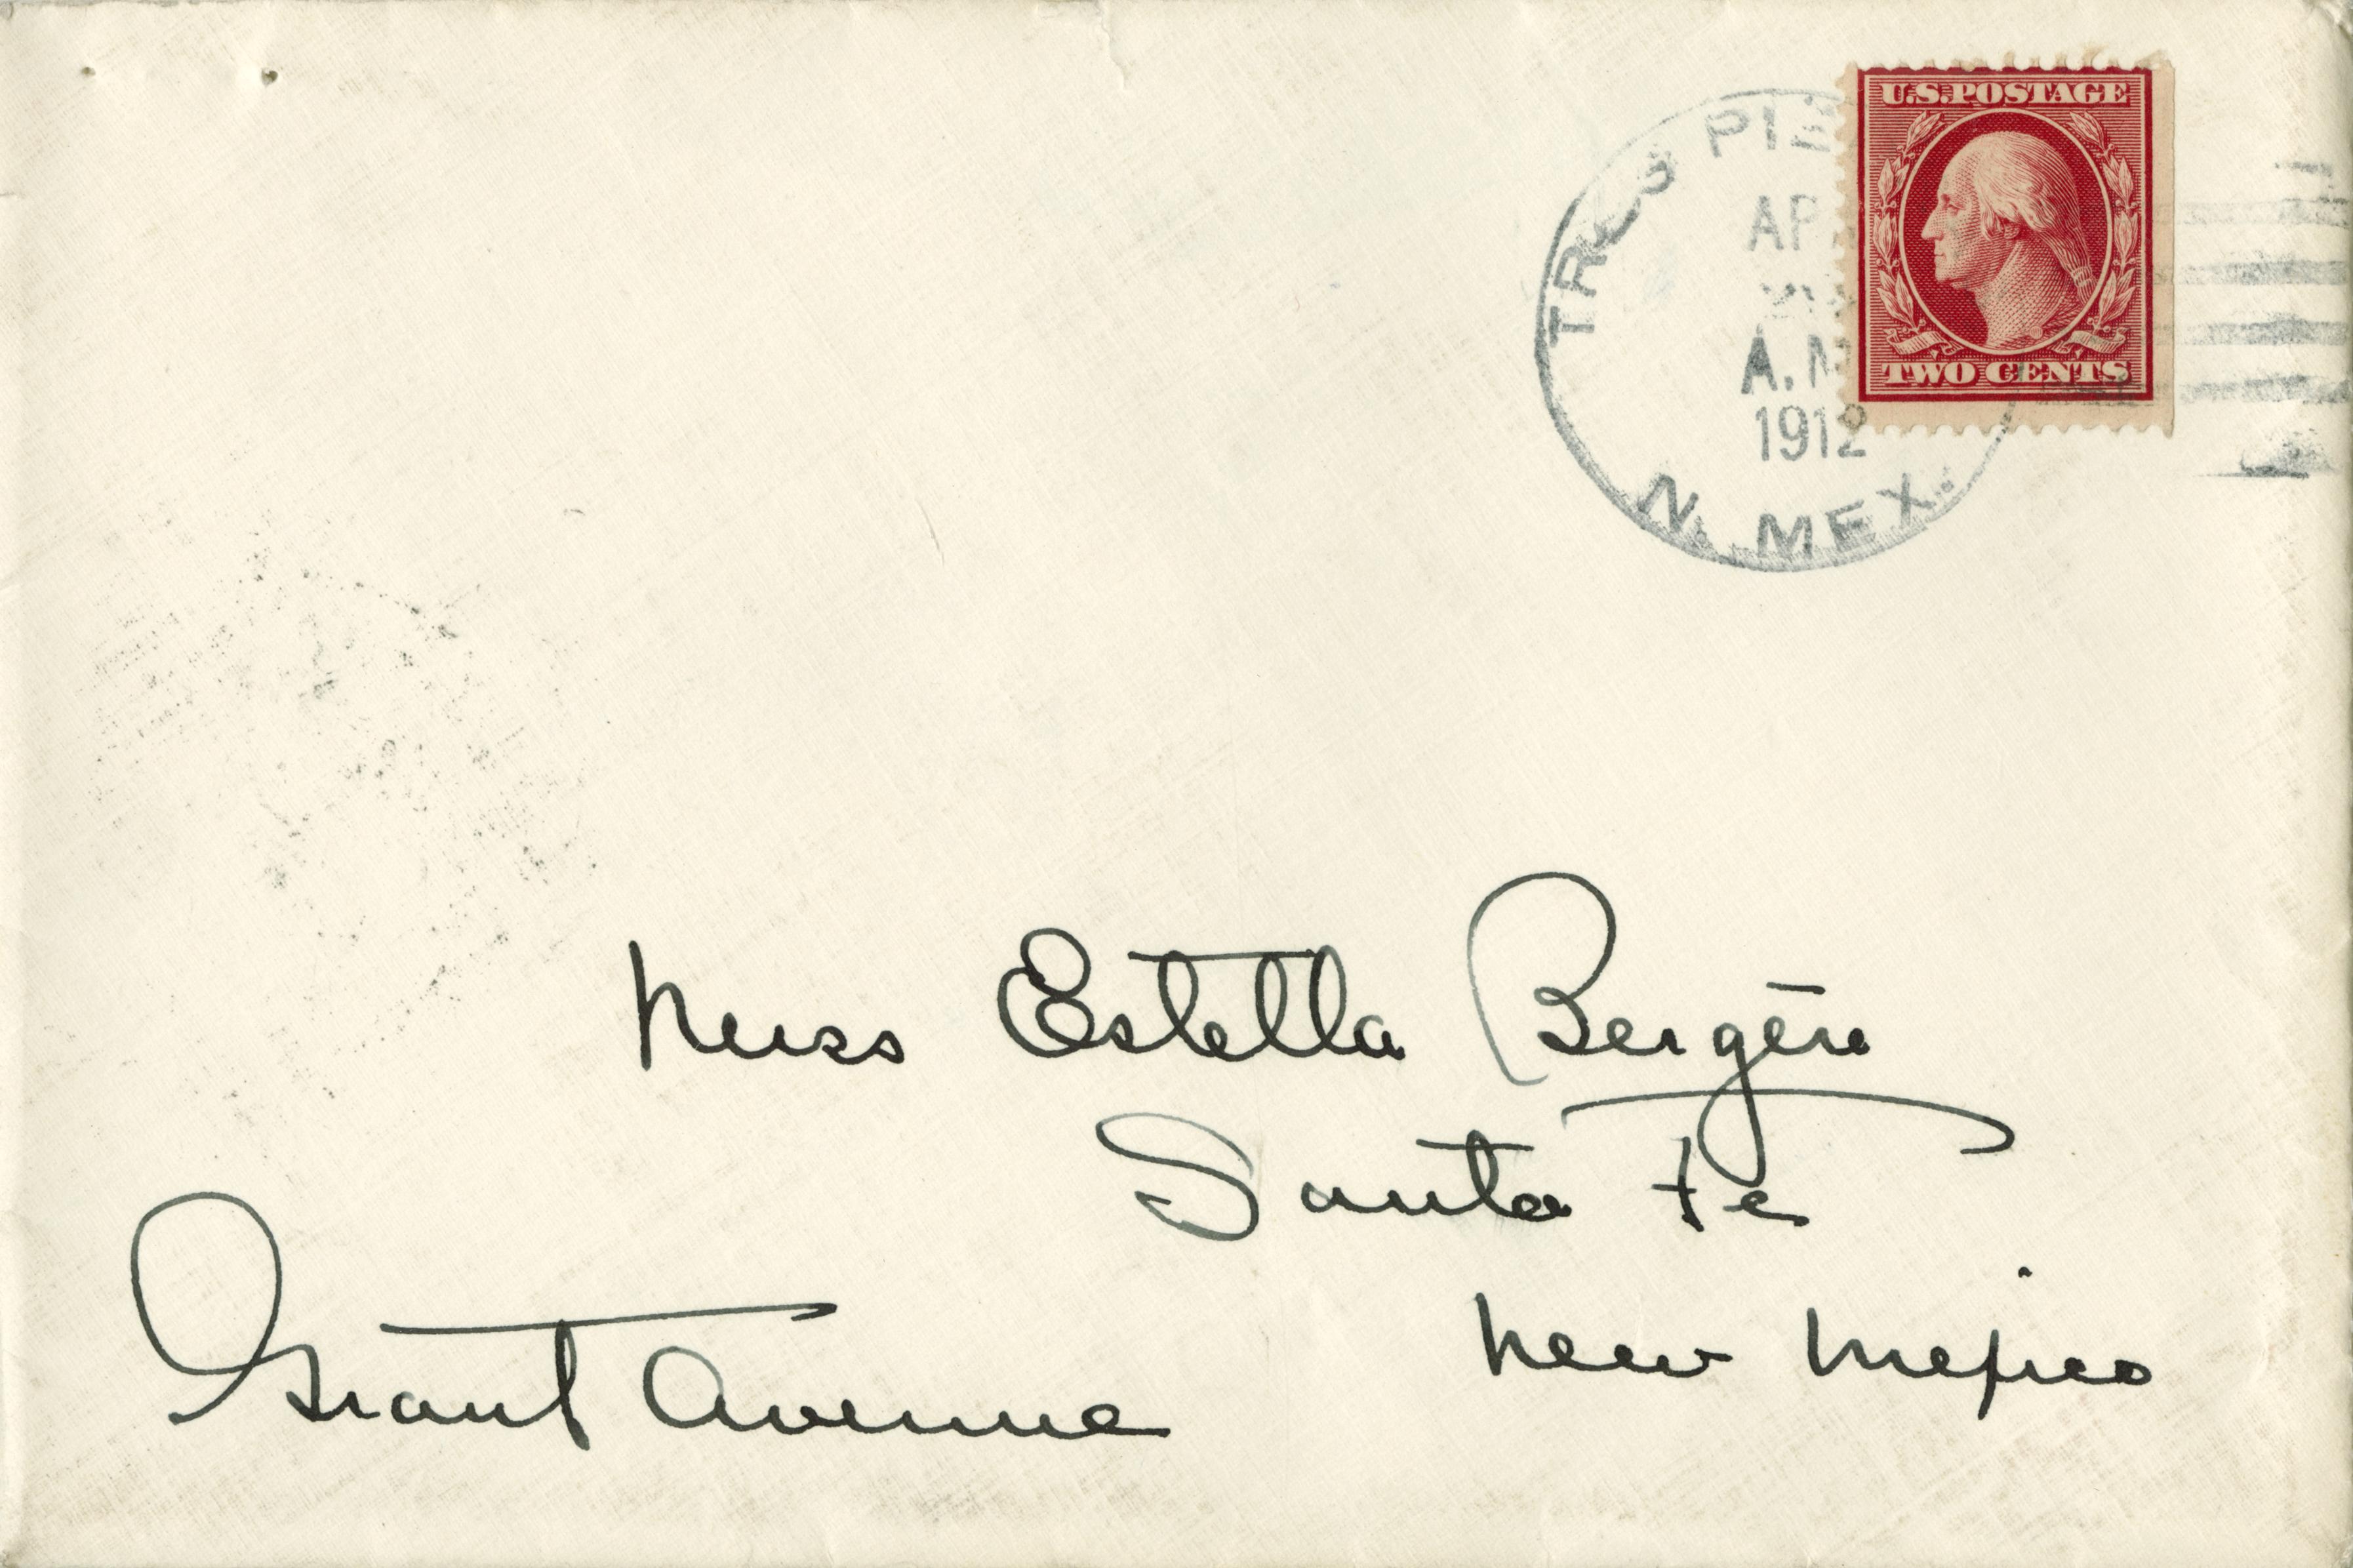 U.S.POSTAGE
TWO CENTS
TRES PIE
AP
A.M
1912
N. MEX.
Miss Estella Bergère
Santa Fe
New Mexico
Grant Avenue